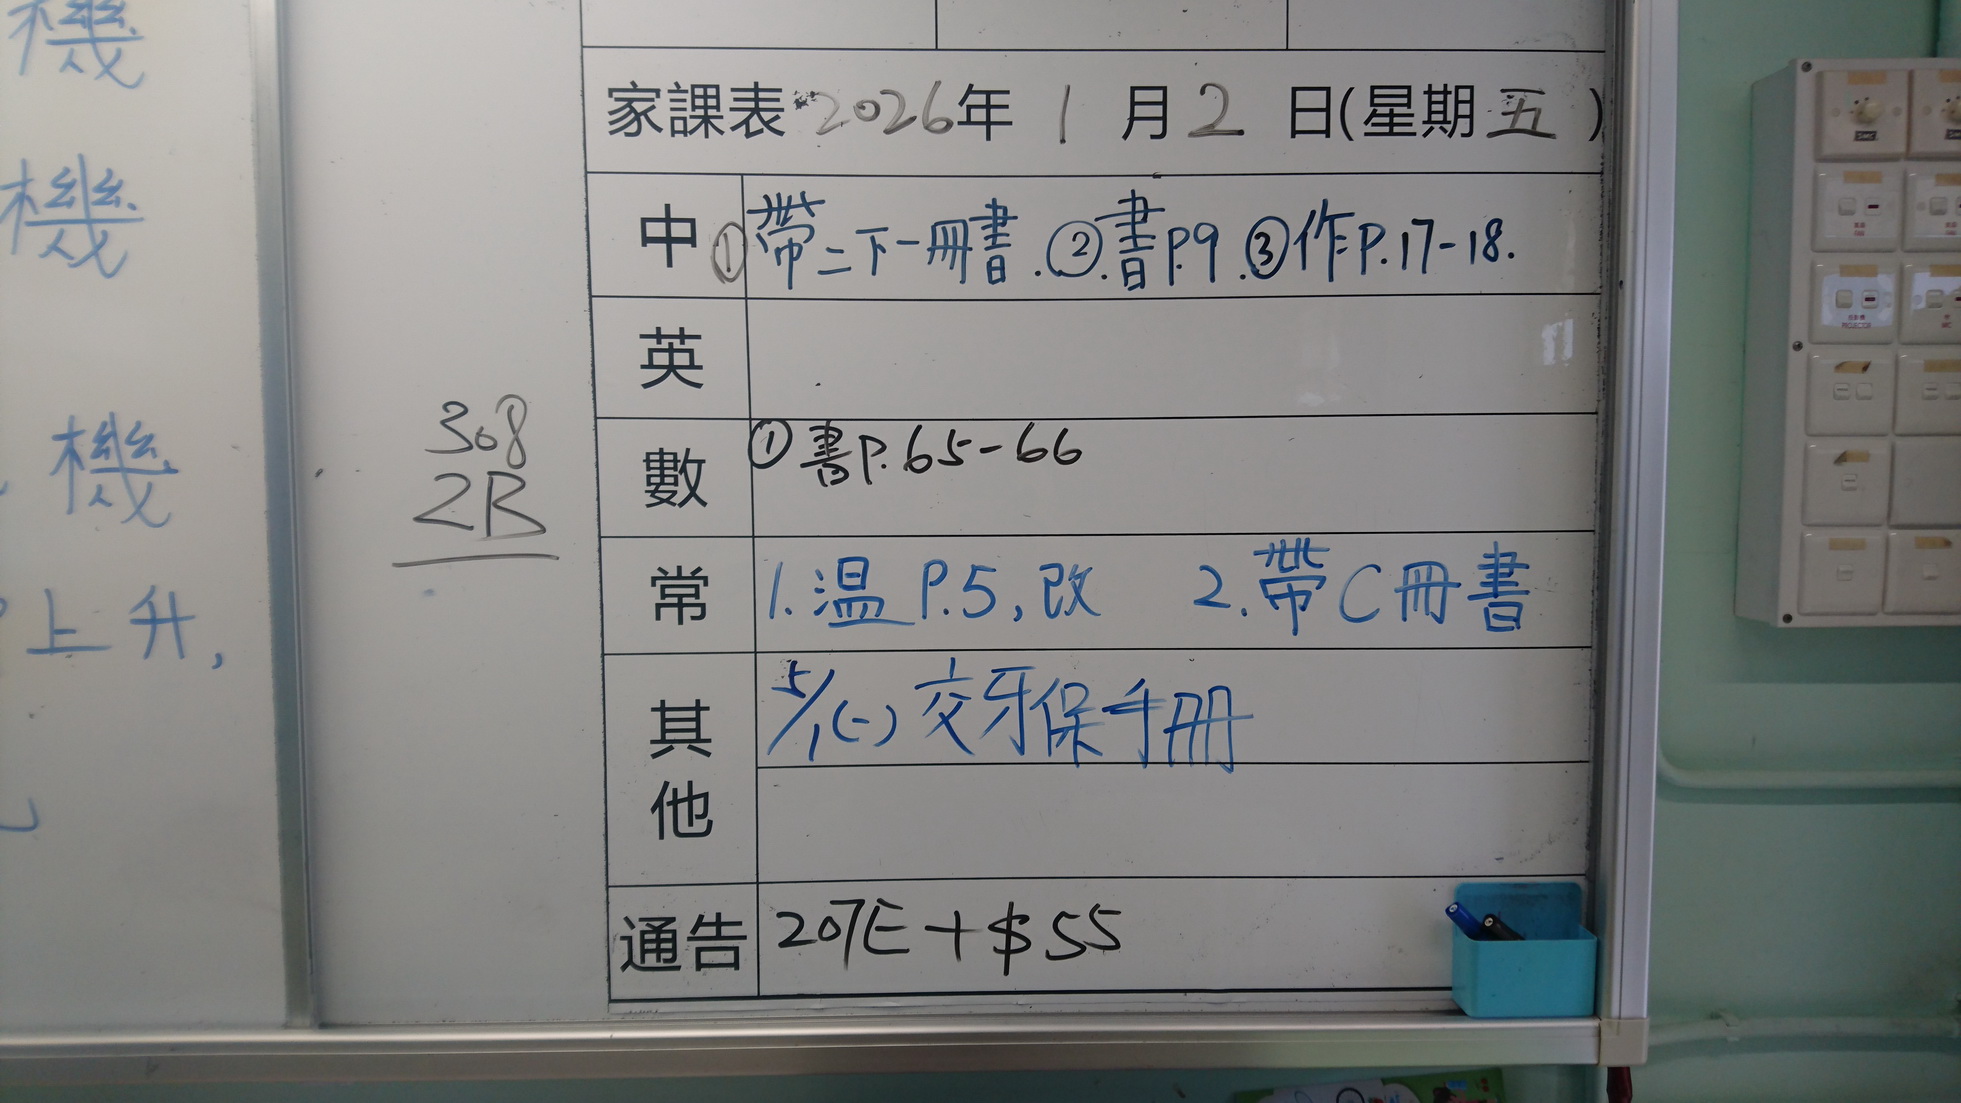 機
機
機
上升,
308
2R
家課表 2026年 1 月 2 日(星期 五 )
中 ① 帶二下一冊書. ②.書P.9. ③作P.17-18.
英
數 ① 書P.65-66
常 1. 温 P.5, 改 2. 帶C冊書
其他 5/1(一) 交牙保手冊
通告 207E + $55